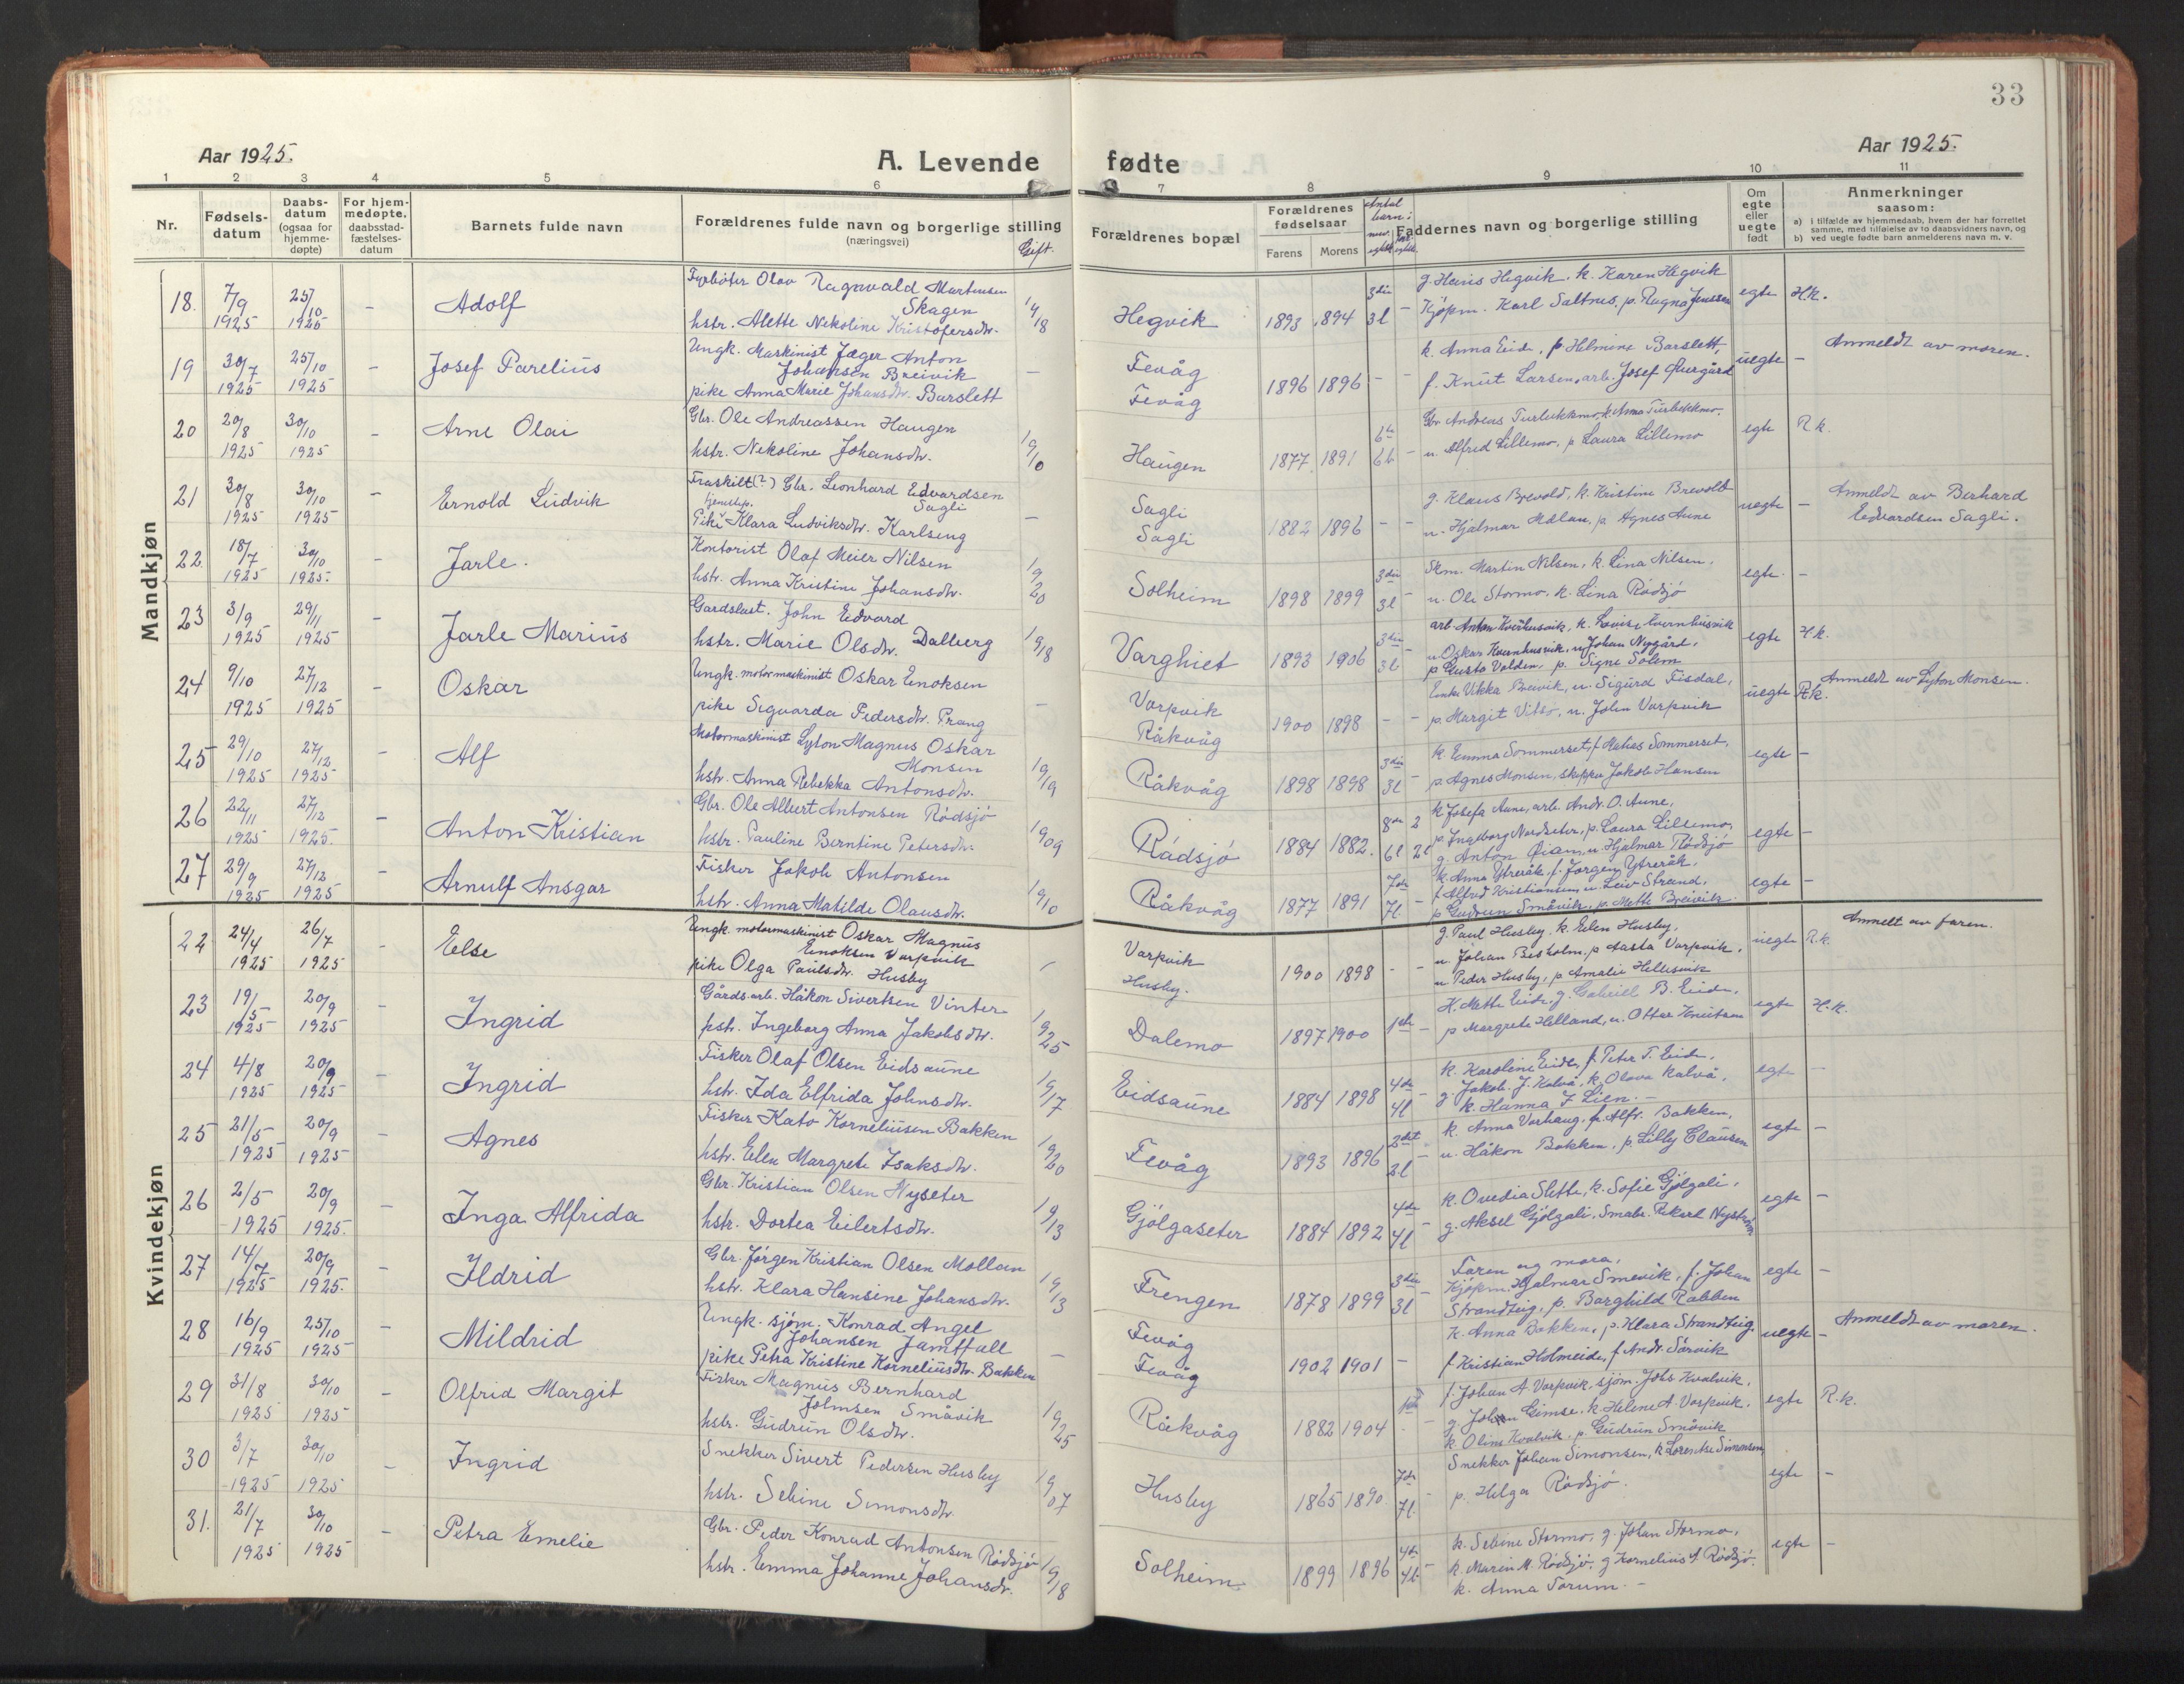 33
Aar 1925.
A. Levende fødte
Aar 1925.
1 2 3 4 5 6 7 8 9 10 11
Nr.
Fødsels-datum
Daabs-datum (ogsaa for hjemme-døpte)
For hjem-medøpte. daabsstad-fæstelses-datum
Barnets fulde navn
Forældrenes fulde navn og borgerlige stilling
(næringsvei)
Gift.
Forældrenes bopæl
Forældrenes fødselsaar
Farens Morens
Antal barn:
Faddernes navn og borgerlige stilling
Om egte eller uegte født
Anmerkninger
saasom:
a) i tilfælde av hjemmedaab, hvem der har forrettet samme, med tilføielse av to daabsvidners navn, og
b) ved uegte fødte barn anmelderens navn m. v.
Mandkjøn
18. 7/9 1925 25/10 1925 - Adolf
Fyrbøter Olav Ragnvald Martensen
Skagen
hstr. Alette Nekoline Kristofersdtr. 19/18
Hegvik 1893 1894 3die 3l -
g. Hans Hegvik, k. Karen Hegvik
Kjøpm. Karl Saltnes, p. Ragna Jenssen
egte H.k.
19 30/7 1925 25/10 1925 - Josef Parelius
Ungk. Maskinist Jæger Anton
Johansen Breivik
pike Anna Marie Johansdtr. Barslett -
Fevåg
Fevåg 1896 1896 - -
k. Anna Eide, p. Helmine Barslett,
f. Knut Larsen, arb. Josef Aurgård
uegte - Anmeldt av moren.
20 20/8 1925 30/10 1925 - Arne Olai
Gbr. Ole Andreassen Haugen
hstr. Nekoline Johansdtr. 19/10
Haugen 1877 1891 6te 6l -
Gbr Andreas Turlukkmo, k. Anna Turlukkmo.
u. Alfred Lillemo, p. Laura Lillemo
egte R.k.
21 30/8 1925 30/10 1925 - Ernold Ludvik
Fraskilt(?) Gbr. Leonhard Edvardsen
Sagli
tjenestep.
Pike Klara Ludviksdtr. Karlseng -
Sagli
Sagli 1882 1896 - -
g. Klaus Brevold, k. Kristine Brevold
u. Hjalmar Mælan, p. Agnes Aune
uegte - Anmeldt av Berhard
Edvardsen Sagli.
22. 18/7 1925 30/10 1925. - Jarle.
Kontorist Olaf Meier Nilsen
hstr. Anna Kristine Johansdtr. 19/20
Solheim 1898 1899 3die 3l -
Skm. Martin Nilsen, k. Lina Nilsen,
u. Ole Stormo, k. Lina Rødsjø
egte. -
23 3/9 1925 29/11 1925 - Jarle Marius
Gardsbest. John Edvard
hstr. Marie Olsdtr. Dalberg 19/18
Varghiet 1893 1906 3die 3l -
arb. Anton Kvernhusvik, k. Lovise Kvernhusvik
u. Oskar Kvernhusvik, u. Johan Nygård,
p. Gusta Volden, p. Signe Solem
egte H.k.
24 9/10 1925 27/12 1925 - Oskar
Ungk. motormaskinist Oskar Enoksen
pike Sigvarda Pedersdtr. Prang -
Vorpvik
Råkvåg 1900 1898 - -
Enke Vikka Breivik, u. Sigurd Fisdal,
p. Margit Vitsø, u. John Vorpvik
uegte R.k. Anmeldt av Lyton Monsen.
25 29/10 1925 27/12 1925 - Alf
Motormaskinist Lyton Magnus Oskar
Monsen
hstr. Anna Rebekka Antonsdtr. 19/19
Råkvåg 1898 1898 3die 3l -
k. Emma Sommerset, f. Matias Sommerset,
p. Agnes Monsen, skipper Jakob Hansen
egte -
26 22/11 1925 27/12 1925. - Anton Kristian
Gbr. Ole Albert Antonsen Rødsjø
hstr. Pauline Berntine Petersdtr. 1909
Rødsjø 1884 1882. 8de 2 6l 2l
k. Josefa Aune, arb. Andr. O. Aune,
p. Ingeborg Nordseter, p. Laura Lillemo,
g. Anton Øian, u. Hjalmar Rødsjø
egte -
27 29/9 1925 27/12 1925 - Arnulf Ansgar
Fisker Jakob Antonsen
hstr. Anna Matilde Olausdtr. 19/10
Råkvåg 1877 1891 7de 7l. -
k. Anna Ytreråk, f. Jørgen Ytreråk,
f. Alfred Kristiansen, u. Leiv Strand,
p. Gudrun Småvik, p. Mette Breivik
egte -
Kvindekjøn
22 24/4 1925 26/7 1925 Else
Ungk. motormaskinist Oskar Magnus
Enoksen Vorpvik
pike Olga Paulsdtr. Husby -
Vorpvik
Husby. 1900 1898 - -
g. Paul Husby, k. Elen Husby,
u. Johan Besholm, p. Aasta Vorpvik,
u. Peder Husby, p. Amalie Hellesvik
uegte R.k. Anmelt av faren.
23 19/5 1925 20/9 1925 - Ingrid
Gårdsarb. Håkon Sivertsen Vinter
hstr. Ingeborg Anna Jakobsdtr. 19/25
Dalemo 1897 1900 1ste -
K. Mette Eide, g. Gabriel B. Eide,
p Margrete Helland, u. Ottar Knutsen
egte H.k.
24 4/8 1925 20/9 1925 - Ingrid
Fisker Olaf Olsen Eidsaune
hstr. Ida Elfrida Johnsdtr. 19/17
Eidsaune 1884 1898 4de 4l -
k. Karoline Eide, f. Peter T. Eide,
g. Jakob J. Kalvå, k. Olava Kalvå,
k. Hanna J Lien. -
egte -
25 21/5 1925 20/9 1925 - Agnes
Fisker Kato Korneliussen Bakken
hstr. Elen Margrete Isaksdtr. 19/20
Fevåg 1893 1896 2det 2l -
k. Anna Vorhaug, f. Alfr. Bakken,
u. Håkon Bakken, p. Lilly Clausen
egte -
26 2/5 1925 20/9 1925. - Inga Alfrida
Gbr. Kristian Olsen Nyseter
hstr. Dortea Eilertsdtr. 19/13
Gjølgaseter 1884 1892 4de 4l -
k. Ovedia Slette, k. Sofie Gjølgali,
g. Aksel Gjølgali, Småbr. Rikard Nystrøm
egte -
27 14/7 1925 20/9 1925. - Ildrid
Gbr. Jørgen Kristian Olsen Mollan
hstr. Klara Hansine Johansdtr. 19/13
Frengen 1878 1899 3die 3l
Faren og mora,
Kjøpm. Hjalmar Smevik, f. Johan
Strandteig, p. Borghild Rabben
egte -
28 16/9 1925 25/10 1925 - Mildrid
Ungk. sjøm. Konrad Angel
Johansen Jamtfall
pike Petra Kristine Korneliusdtr. Bakken -
Fevåg
Fevåg 1902 1901 -
k. Anna Bakken, p. Klara Strandteig.
f. Kristian Holmeide, f. Andr. Sørvik
uegte - Anmeldt av moren.
29 31/8 1925 30/10 1925 - Olfrid Margit
Fisker Magnus Bernhard
Johnsen Småvik
hstr. Gudrun Olsdtr. 19/25
Råkvåg 1882 1904 1ste -
f. Johan A. Vorpvik, sjøm. Johs Kvalvik,
g. Johan Gimse, k. Helene A. Vorpvik,
k. Oline Kvalvik, p. Gudrun Småvik
egte R.k.
30 3/7 1925 30/10 1925 - Ingrid
Snekker Sivert Pedersen Husby
hstr. Seline Simonsdtr. 19/07
Husby 1865 1890 7de 7l. -
Snekker Johan Simonsen, k. Lorentse Simonsen
p. Helga Rødsjø.
egte -
31. 21/7 1925 30/10 1925 - Petra Emelie
Gbr. Peder Konrad Antonsen Rødsjø
hstr. Emma Johanne Johansdtr. 19/18
Solheim 1899 1896 4de 4l -
k. Seline Stormo, g. Johan Stormo,
k. Marin M. Rødsjø, g Kornelius A Rødsjø.
k. Anna Torum. -
egte -